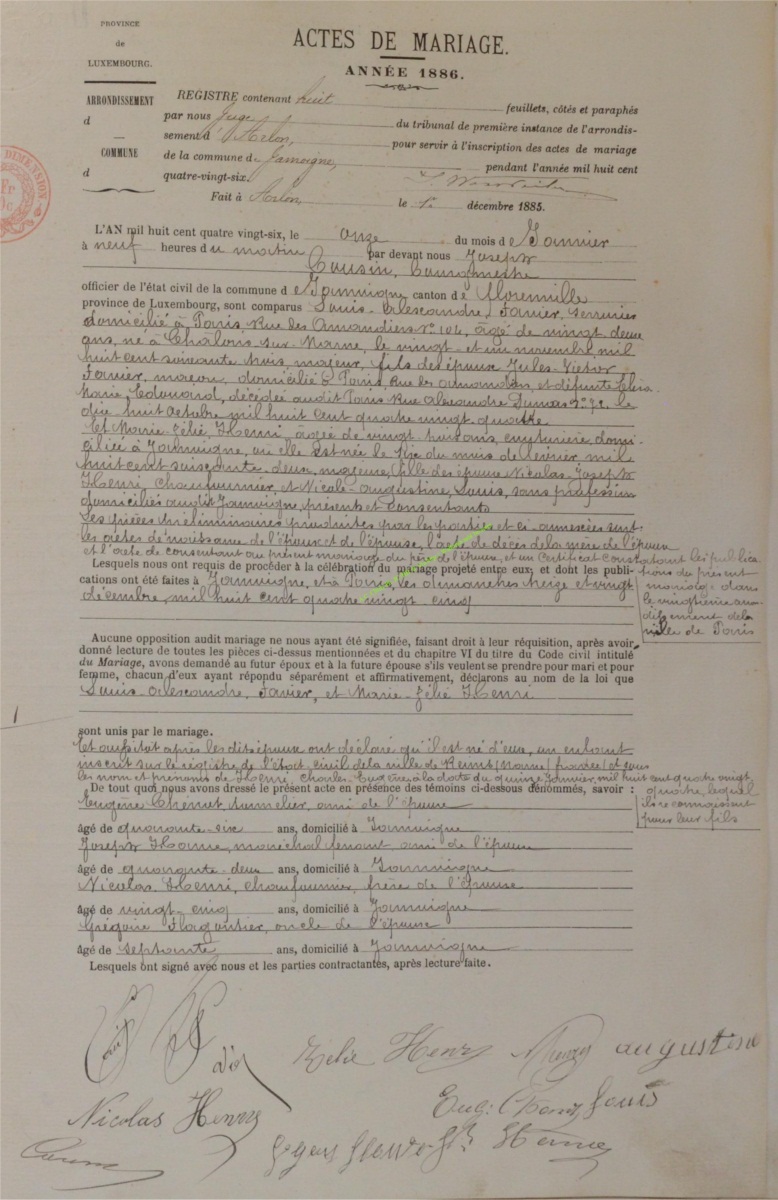 PROVINCE
de
LUXEMBOURG.
ARRONDISSEMENT
d
COMMUNE
d
DIMENSION
ACTES DE MARIAGE.
ANNÉE 1886.
REGISTRE contenant huit feuillets, côtés et paraphés
par nous Juge du tribunal de première instance de l'arrondis-
sement d'Arlon, pour servir à l'inscription des actes de mariage
de la commune de Jamoigne, pendant l'année mil huit cent
quatre-vingt-six.
Fait à Arlon le décembre 1885.
L'AN mil huit cent quatre vingt-six, le onze du mois de Janvier
à neuf heures du matin par devant nous Joseph
Cousin, bourgmestre
officier de l'état civil de la commune de Jamoigne canton de Florenville
province de Luxembourg, sont comparus Louis-Alexandre, Javier, serrurier
domicilié à Paris Rue des Amandiers No 104, âgé de vingt deux
ans, né à Châlons sur Marne, le vingt et un novembre mil
huit cent soixante trois, majeur, fils des époux Jules-Victor
Javier, maçon, domicilié à Paris, rue des amandiers, et défunte
Marie Edouard, décédée audit Paris Rue Alexandre Dumas le
dix-huit octobre mil huit cent quatre vingt quatre
Et Marie-Zélie, Henri, âgée de vingt trois ans, couturière, domi-
ciliée à Jamoigne, où elle est née le six du mois de février mil
huit cent soixante-deux, majeure, fille des époux Nicolas-Joseph
Henri, chaufournier, et Nicole-Augustine, Louis, sans profession
domiciliés audit Jamoigne, présents et consentants
Les pièces préliminaires produites par les parties et ci-annexées sont
les actes de naissance de l'époux et de l'épouse, l'acte de décès de la mère de l'époux
et l'acte de consentant au présent mariage du père de l'époux, et un certificat constatant les publica-
tions du présent
mariage dans
le vingtième arr-
dissement de la
ville de Paris
Lesquels nous ont requis de procéder à la célébration du mariage projeté entre eux; et dont les publi-
cations ont été faites à Jamoigne, et à Paris les dimanches treize et vingt
décembre, mil huit cent quatre vingt cinq
Aucune opposition audit mariage ne nous ayant été signifiée, faisant droit à leur réquisition, après avoir
donné lecture de toutes les pièces ci-dessus mentionnées et du chapitre VI du titre du Code civil intitulé
du Mariage, avons demandé au futur époux et à la future épouse s'ils veulent se prendre pour mari et pour
femme, chacun d'eux ayant répondu séparément et affirmativement, déclarons au nom de la loi que
Louis-Alexandre, Javier, et Marie-Zélie Henri
sont unis par le mariage.
Et aussitôt après les dits époux ont déclaré qu'il est né d'eux, un enfant
inscrit sur le registre de l'état civil de la ville de Reims (Marne) (france) et sous
les nom et prénoms de Henri, Charles Eugène, à la date du quinze Janvier, mil huit cent quatre vingt
quatre, lequel
ils reconnaissent
pour leur fils
De tout quoi nous avons dressé le présent acte en présence des témoins ci-dessous dénommés, savoir :
Eugène tunnelier, ami de l'époux
âgé de quarante-six ans, domicilié à Jamoigne
Joseph maréchal ferrant, ami de l'époux
âgé de quarante-deux ans, domicilié à Jamoigne
Nicolas Henri, chaufournier, frère de l'épouse
âgé de vingt-cinq ans, domicilié à Jamoigne
Grégoire oncle de l'épouse
âgé de septante ans, domicilié à Jamoigne
Lesquels ont signé avec nous et les parties contractantes, après lecture faite.
Zelie Henry Henry augustine
Nicolas Henry Louis